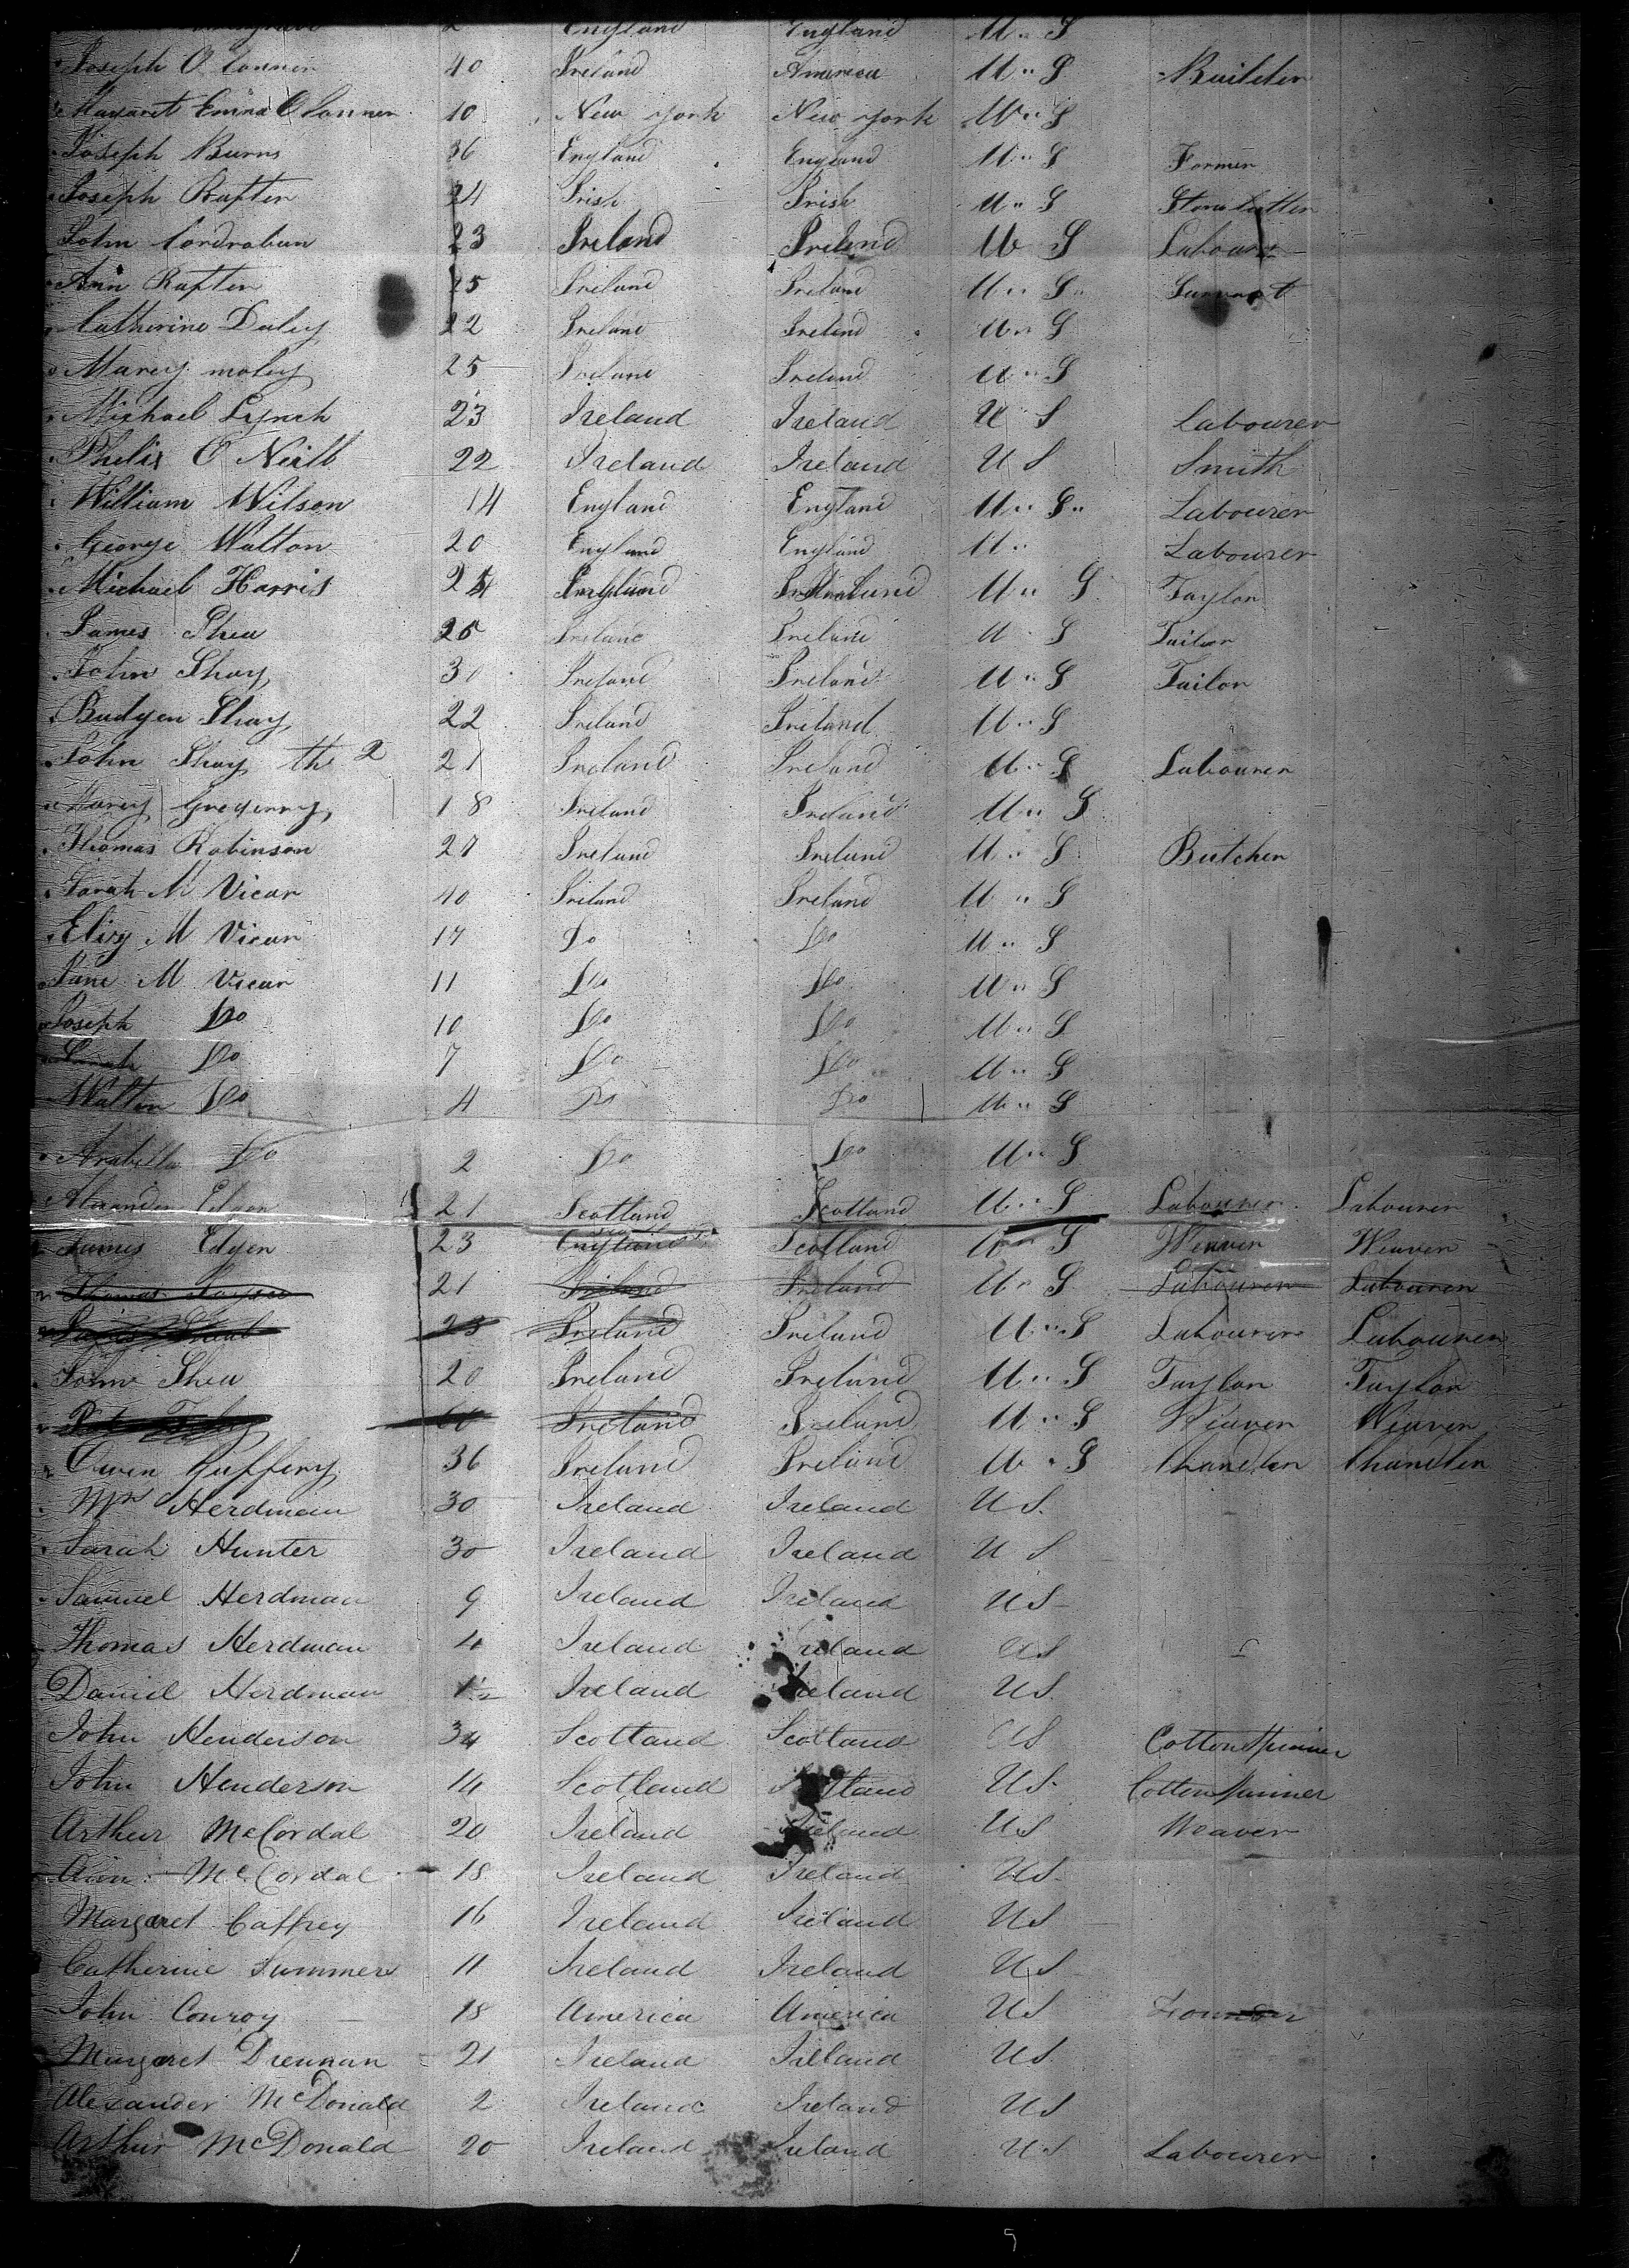 2 England England U.. S
Joseph O Conner 40 Ireland America U.. S Builder
Margaret Emma O Conner 10 New york New york U.. S
Joseph Burns 36 England England U.. S Farmer
Joseph Rafter 24 Irish Irish U.. S Stone Cutter
John Cordraban 23 Ireland Ireland U S Labourer
Ann Rafter 25 Ireland Ireland U.. S.. Survant
Catherine Daley 22 Ireland Ireland U.. S
Marey moley 25 Ireland Ireland U.. S
Michael Lynch 23 Ireland Ireland U S Labourer
Phelix O Neill 22 Ireland Ireland U S Smith
William Wilson 14 England England U.. S.. Labourer
George Walton 20 England England U.. Labourer
Michael Harris U.. S Taylor
James Shea 25 Ireland Ireland U S Tailor
John Shay 30 Ireland Ireland U.. S Tailor
Budgen Shay 22 Ireland Ireland U.. S
John Shay th 2 21 Ireland Ireland U.. S Labourer
Marey Gregerry 18 Ireland Ireland U.. S
Thomas Robinson 27 Ireland Ireland U.. S Butcher
Sarah M Vicar 40 Ireland Ireland U.. S
Elizy M Vicar 17 Do Do U.. S
Jane M Vicar 11 Do Do U.. S
Joseph Do 10 Do Do U.. S
Sarah Do 7 Do Do U.. S
Walter Do 4 Do Do U.. S
Arabella Do 2 Do Do U.. S
Alexander Edgen 21 Scotland Scotland U.. S Labourer Labourer
James Edgen 23 Scotland U.. S Weaver Weaver
Thomas 21 Ireland Ireland U.. S Labourer Labourer
James 23 Ireland Ireland U.. S Labourer Labourer
John Shea 20 Ireland Ireland U.. S Taylor Taylor
60 Ireland Ireland U.. S Weaver Weaver
Owen Guffery 36 Ireland Ireland U.. S Chandler Chandler
Mrs Herdman 30 Ireland Ireland U S.
Sarah Hunter 30 Ireland Ireland U S
Samuel Herdman 9 Ireland Ireland U S
Thomas Herdman 4 Ireland Ireland U S
Daniel Herdman 1½ Ireland Ireland U S.
John Henderson 34 Scotland Scotland U S Cotton Spinner
John Henderson 14 Scotland Scotland U S. Cotton Spinner
Arthur McCordal 20 Ireland Ireland U S Weaver
Ann McCordal 18 Ireland Ireland U S.
Margaret Caffrey 16 Ireland Ireland U S
Catherine Summers 11 Ireland Ireland U S
John Conroy 18 America America U S
Margaret Drennan 21 Ireland Ireland U S.
Alexander McDonald 2 Ireland Ireland U S
Arthur McDonald 20 Ireland Ireland U S Labourer